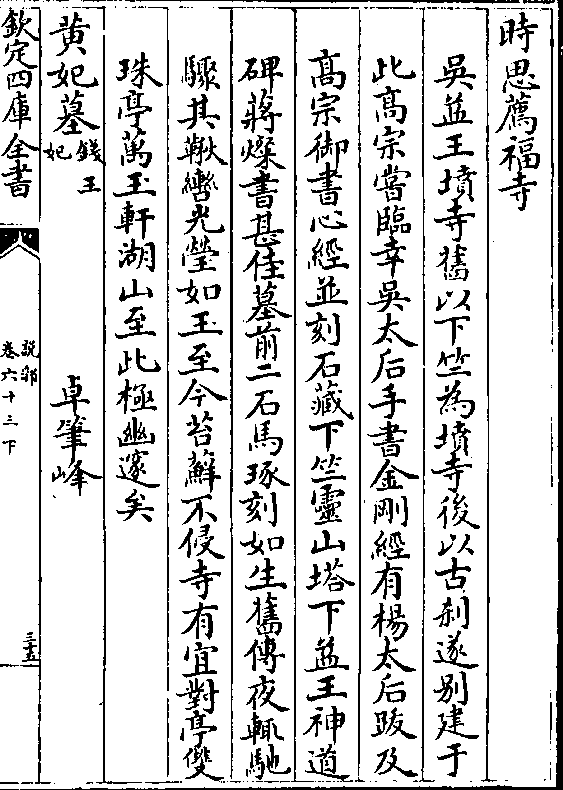 時思薦福寺
吳益王墳寺舊以下竺為墳寺後以古刹遂别建于
此髙宗嘗臨幸吳太后手書金剛經有楊太后䟦及
髙宗御書心經並刻石藏下竺靈山塔下益王神道
碑蔣燦書甚佳墓前二石馬琢刻如生舊傳夜輙馳
驟其鞦轡光瑩如玉至今苔蘚不侵寺有宜對亭雙
珠亭萬玉軒湖山至此極幽邃矣
黄妃墓錢王妃
卓筆峰
欽定四庫全書
說郛
卷六十三下
三五